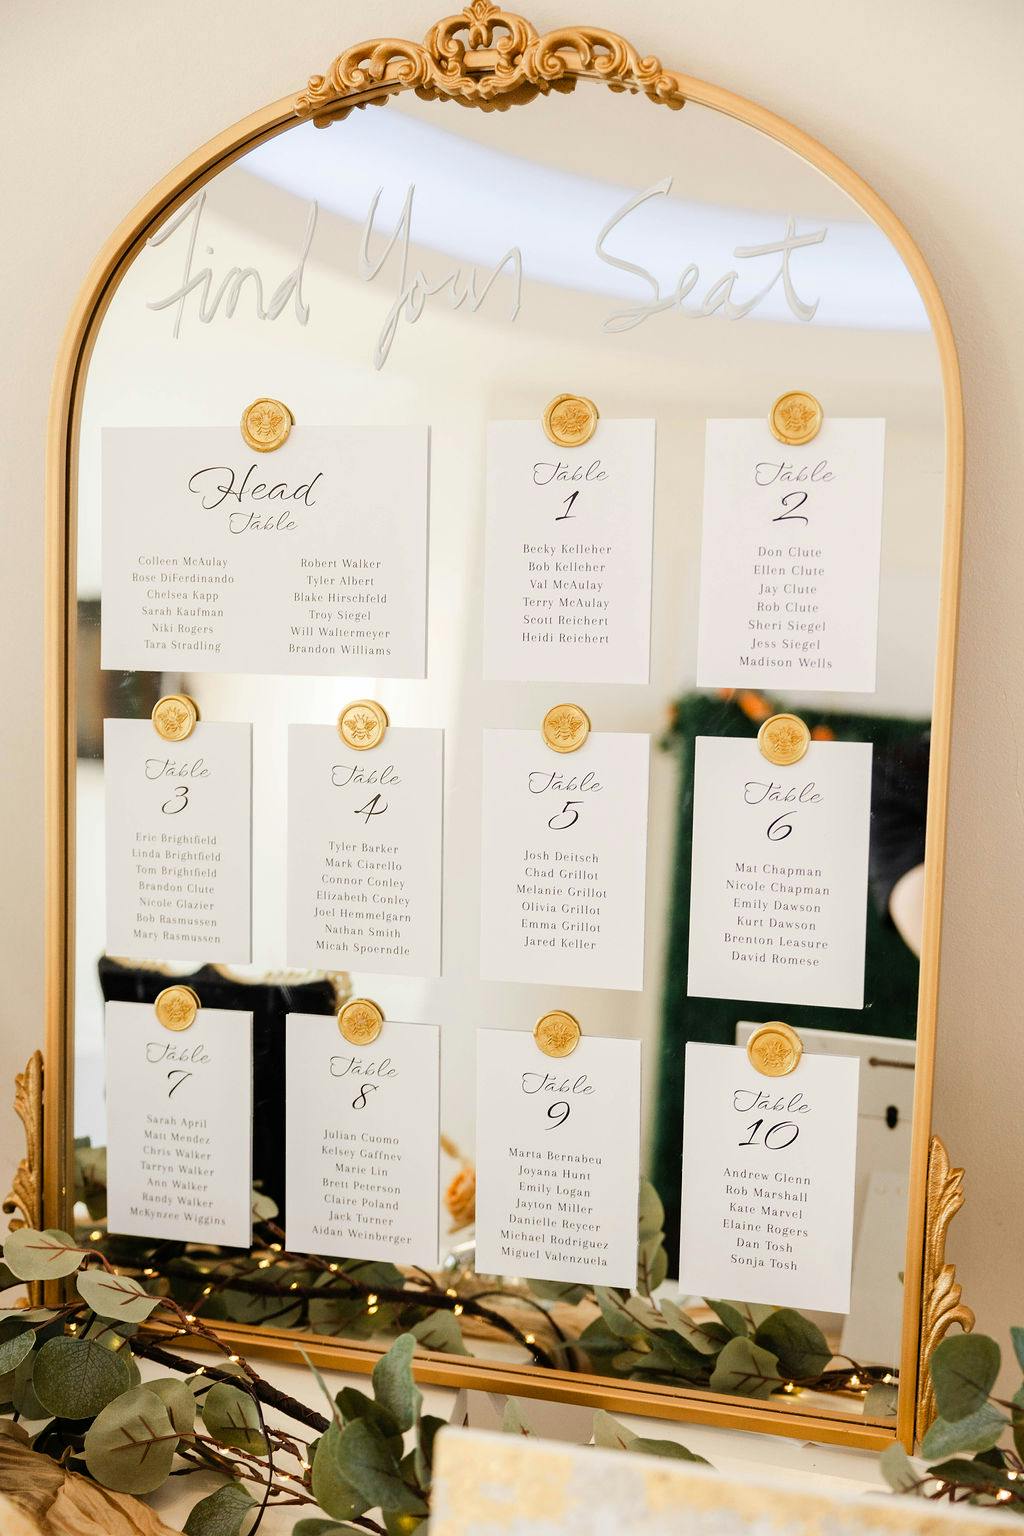 Find Your Seat
Head
Table
Colleen McAulay
Rose DiFerdinando
Chelsea Kapp
Sarah Kaufman
Niki Rogers
Tara Stradling
Robert Walker
Tyler Albert
Blake Hirschfeld
Troy Siegel
Will Waltermeyer
Brandon Williams
Table
1
Becky Kelleher
Bob Kelleher
Val McAulay
Terry McAulay
Scott Reichert
Heidi Reichert
Table
2
Don Clute
Ellen Clute
Jay Clute
Rob Clute
Sheri Siegel
Jess Siegel
Madison Wells
Table
3
Eric Brightfield
Linda Brightfield
Tom Brightfield
Brandon Clute
Nicole Glazier
Bob Rasmussen
Mary Rasmussen
Table
4
Tyler Barker
Mark Ciarello
Connor Conley
Elizabeth Conley
Joel Hemmelgarn
Nathan Smith
Micah Spoerndle
Table
5
Josh Deitsch
Chad Grillot
Melanie Grillot
Olivia Grillot
Emma Grillot
Jared Keller
Table
6
Mat Chapman
Nicole Chapman
Emily Dawson
Kurt Dawson
Brenton Leasure
David Romese
Table
7
Sarah April
Matt Mendez
Chris Walker
Tarryn Walker
Ann Walker
Randy Walker
McKynzee Wiggins
Table
8
Julian Cuomo
Kelsey Gaffney
Marie Lin
Brett Peterson
Claire Poland
Jack Turner
Aidan Weinberger
Table
9
Marta Bernabeu
Joyana Hunt
Emily Logan
Jayton Miller
Danielle Reyeer
Michael Rodriguez
Miguel Valenzuela
Table
10
Andrew Glenn
Rob Marshall
Kate Marvel
Elaine Rogers
Dan Tosh
Sonja Tosh